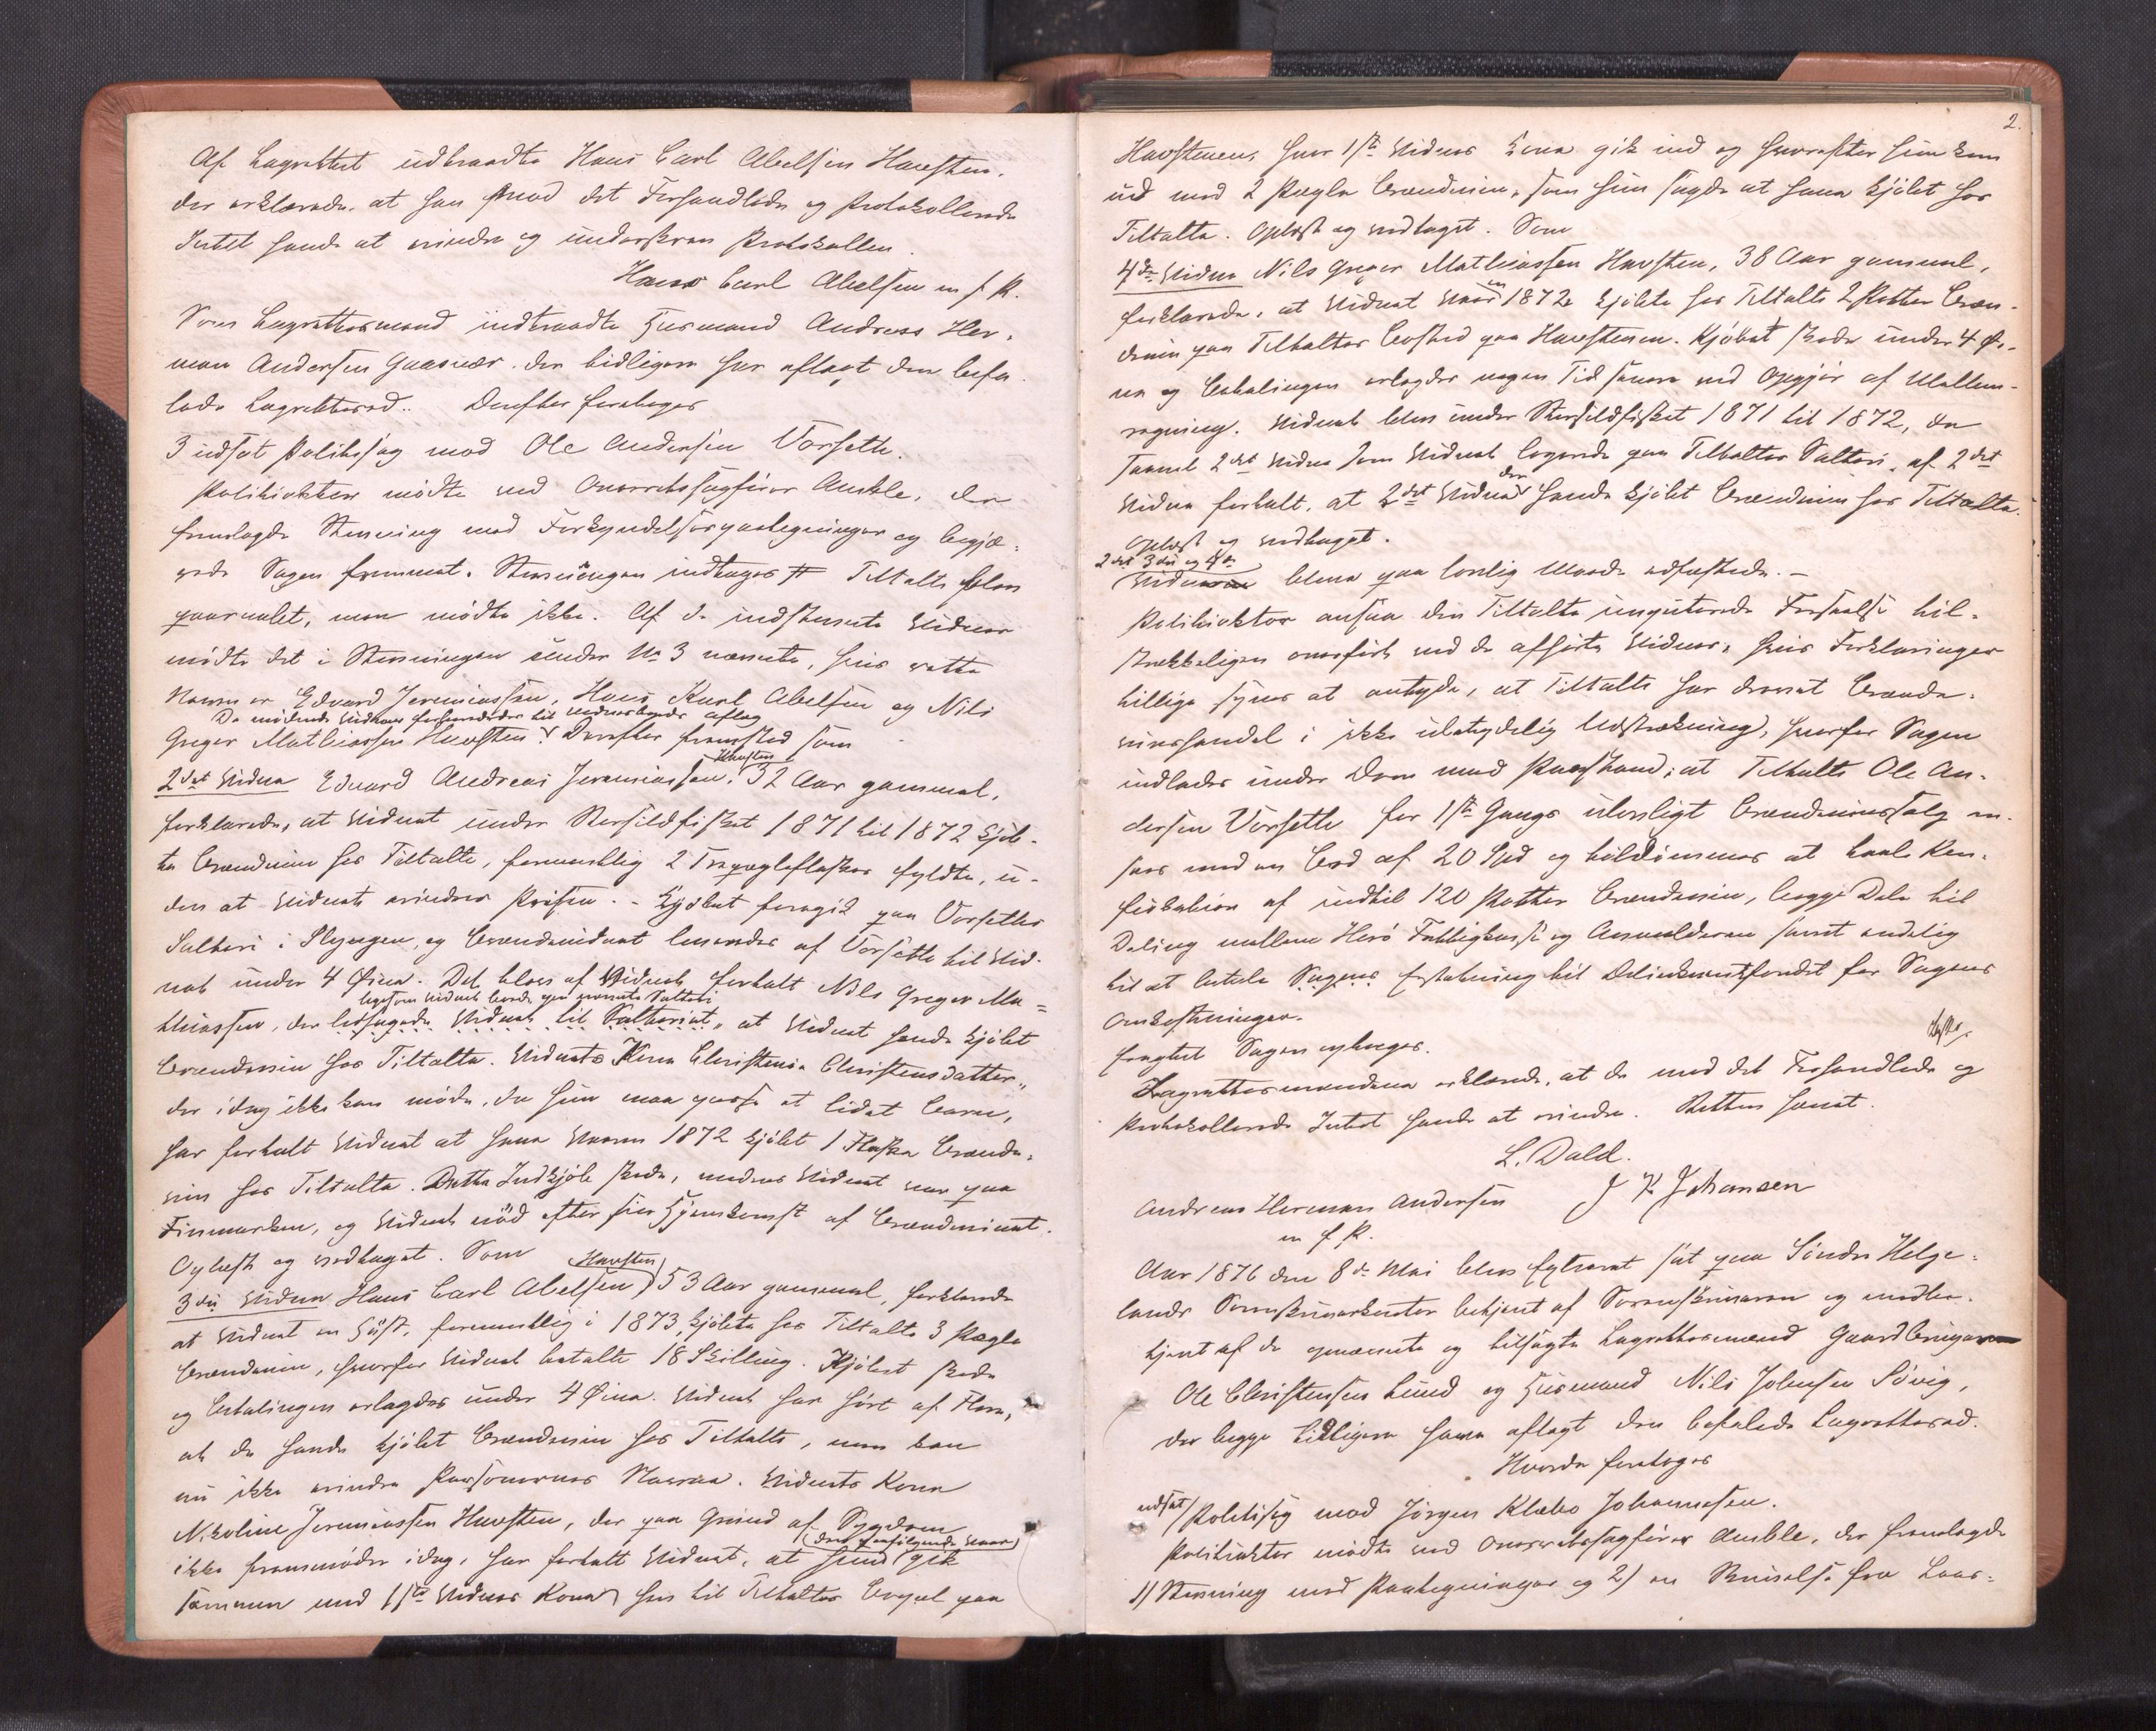 Af Lagrettet udtraadte Hans Carl Abelsen Havsten,
der erklærede, at han mod det Forhandlede og Protokollerede
Intet havde at erindre og underskrev Protokollen.
Hans Carl Abelsen m f P.
Som Lagrettesmand indtraadte Husmand Andreas Her-
man Andersen Gaasvær, der tidligere har aflagt den befa-
lede Lagrettesed. Derefter foretoges
3 udsat Politisag mod Ole Andersen Vorsette.
Politiaktor mødte ved Overretssagfører Amble, der
fremlagde Stævning med Forkyndelsespaategninger og begjæ-
rede Sagen fremmet. Stævningen indtages # Tiltalte blev
paaraabt, men mødte ikke. Af de indstævnte Vidner
mødte det i Stævningen under No 3 nævnte, hvis rette
Navn er Edvard Jeremiassen, Hans Karl Abelsen og Nils
De mødende Vidner formanedes til Vidnesbyrds aflæg
Greger Mathiassen Havsten. Derefter fremstod som
2det Vidne Edvard Andreas Jeremiassen, Havsten 32 Aar gammel,
forklarede, at Vidnet under Storsildfisket 1871 til 1872 kjøb-
te Brændevin hos Tiltalte, formentlig 2 Trepægleflasker fyldte, u-
den at Vidnet erindrer Prisen. - Kjøbet foregik paa Vorsettes
Salteri i Flyengen, og Brændevinet leveredes af Vorsette til Vid-
net under 4 Øine. Det blev af Vidnet fortalt Nils Greger Ma-
ligesom Vidnet boede paa nævnte Salteri
thiassen, der ledsagede Vidnet til Salteriet, at Vidnet havde kjøbt
Brændevin hos Tiltalte. Vidnets Kone Christense Christensdatter,
der idag ikke kan møde, da hun maa passe et lidet Barn,
har fortalt Vidnet at have Vaaren 1872 kjøbt 1 Flaske Brænde-
vin hos Tiltalte. Dette Indkjøb skede, medens Vidnet var paa
Finmarken, og Vidnet nød efter sin Hjemkomst af Brændevinet.
Oplæst og vedtaget. Som
3die Vidne Hans Carl Abelsen Havsten 53 Aar gammel, forklarede
at Vidnet en Høst, formentlig i 1873, kjøbte hos Tiltalte 3 Pægle
Brændevin, hvorfor Vidnet betalte 18 Skilling. Kjøbet skede
og Betalingen erlagdes under 4 Øine. Vidnet har hørt af Flere,
at de havde kjøbt Brændevin hos Tiltalte, men kan
nu ikke erindre Personernes Navne. Vidnets Kone
Nikoline Jeremiassen Havsten, der paa Grund af Sygdom
ikke fremmøder idag, har fortalt Vidnet, at hun (den paafølgende Vaar) gik
sammen med 1ste Vidnes Kone hen til Tiltaltes Bopæl paa
2.
Havstenen, hvor 1ste Vidnes Kone gik ind og hvorefter hun kom
ud med 2 Pægle Brændevin, som hun sagde at have kjøbt hos
Tiltalte. Oplæst og vedtaget. Som
4de Vidne Nils Greger Mathiassen Havsten, 38 Aar gammel,
forklarede, at Vidnet Vaaren 1872 kjøbte hos Tiltalte 2 Potter Bræn-
devin paa Tiltaltes Bosted paa Havstenen. Kjøbet skede under 4 Øi-
ne og Betalingen erlagdes nogen Tid senere ved Opgjør af Mellem-
regning. Vidnet blev under Storsildfisket 1871 til 1872, da
saavel 2det Vidne som Vidnet logerede paa Tiltaltes Salteri, af 2det
Vidne fortalt, at 2det Vidne der havde kjøbt Brændevin hos Tiltalte.
Oplæst og vedtaget.
2det 3die og 4de
Vidne bleve paa lovlig Maade edfæstede. -
Politiaktor ansaa den Tiltalte imputerede Forseelse til-
strækkeligen overført ved de afhørte Vidner, hvis Forklaringer
tillige synes at antyde, at Tiltalte har drevet Brænde-
vinshandel i ikke ubetydelig Udstrækning, hvorfor Sagen
indlodes under Dom med Paastand: at Tiltalte Ole An-
dersen Vorsette for 1ste Gangs ulovligt Brændevinssalg an-
sees med en Bod af 20 Spd og tildømmes at taale Kon-
fiskation af indtil 120 Potter Brændevin, begge Dele til
Deling mellem Herø Fattigkasse og Anmelderen samt endelig
til at betale Sagens Erstatning til Delinkventfondet for Sagens
Omkostninger.
Fragtet Sagen optages.
Lagrettesmændene erklærede, at de mod det Forhandlede og
Protokollerede Intet havde at erindre. Retten hævet.
L. Dald.
Andreas Herman Andersen J K Johansen
m f P.
Aar 1876 den 8de Mai blev Extraret sat paa Søndre Helge-
lands Sorenskriverkontor betjent af Sorenskriveren og medbe-
tjent af de opnævnte og tilsagte Lagrettesmænd Gaardbruger
Ole Christensen Lund og Husmand Nils Johnsen Søvig,
der begge tidligere have aflagt den befalede Lagrettesed.
Hvorda foretoges
udsat Politisag mod Jørgen Klæbo Johannesen.
Politiaktor mødte ved Overretssagfører Amble, der fremlagde
1) Stævning med Paategninger og 2) en Skrivelse fra Lens-